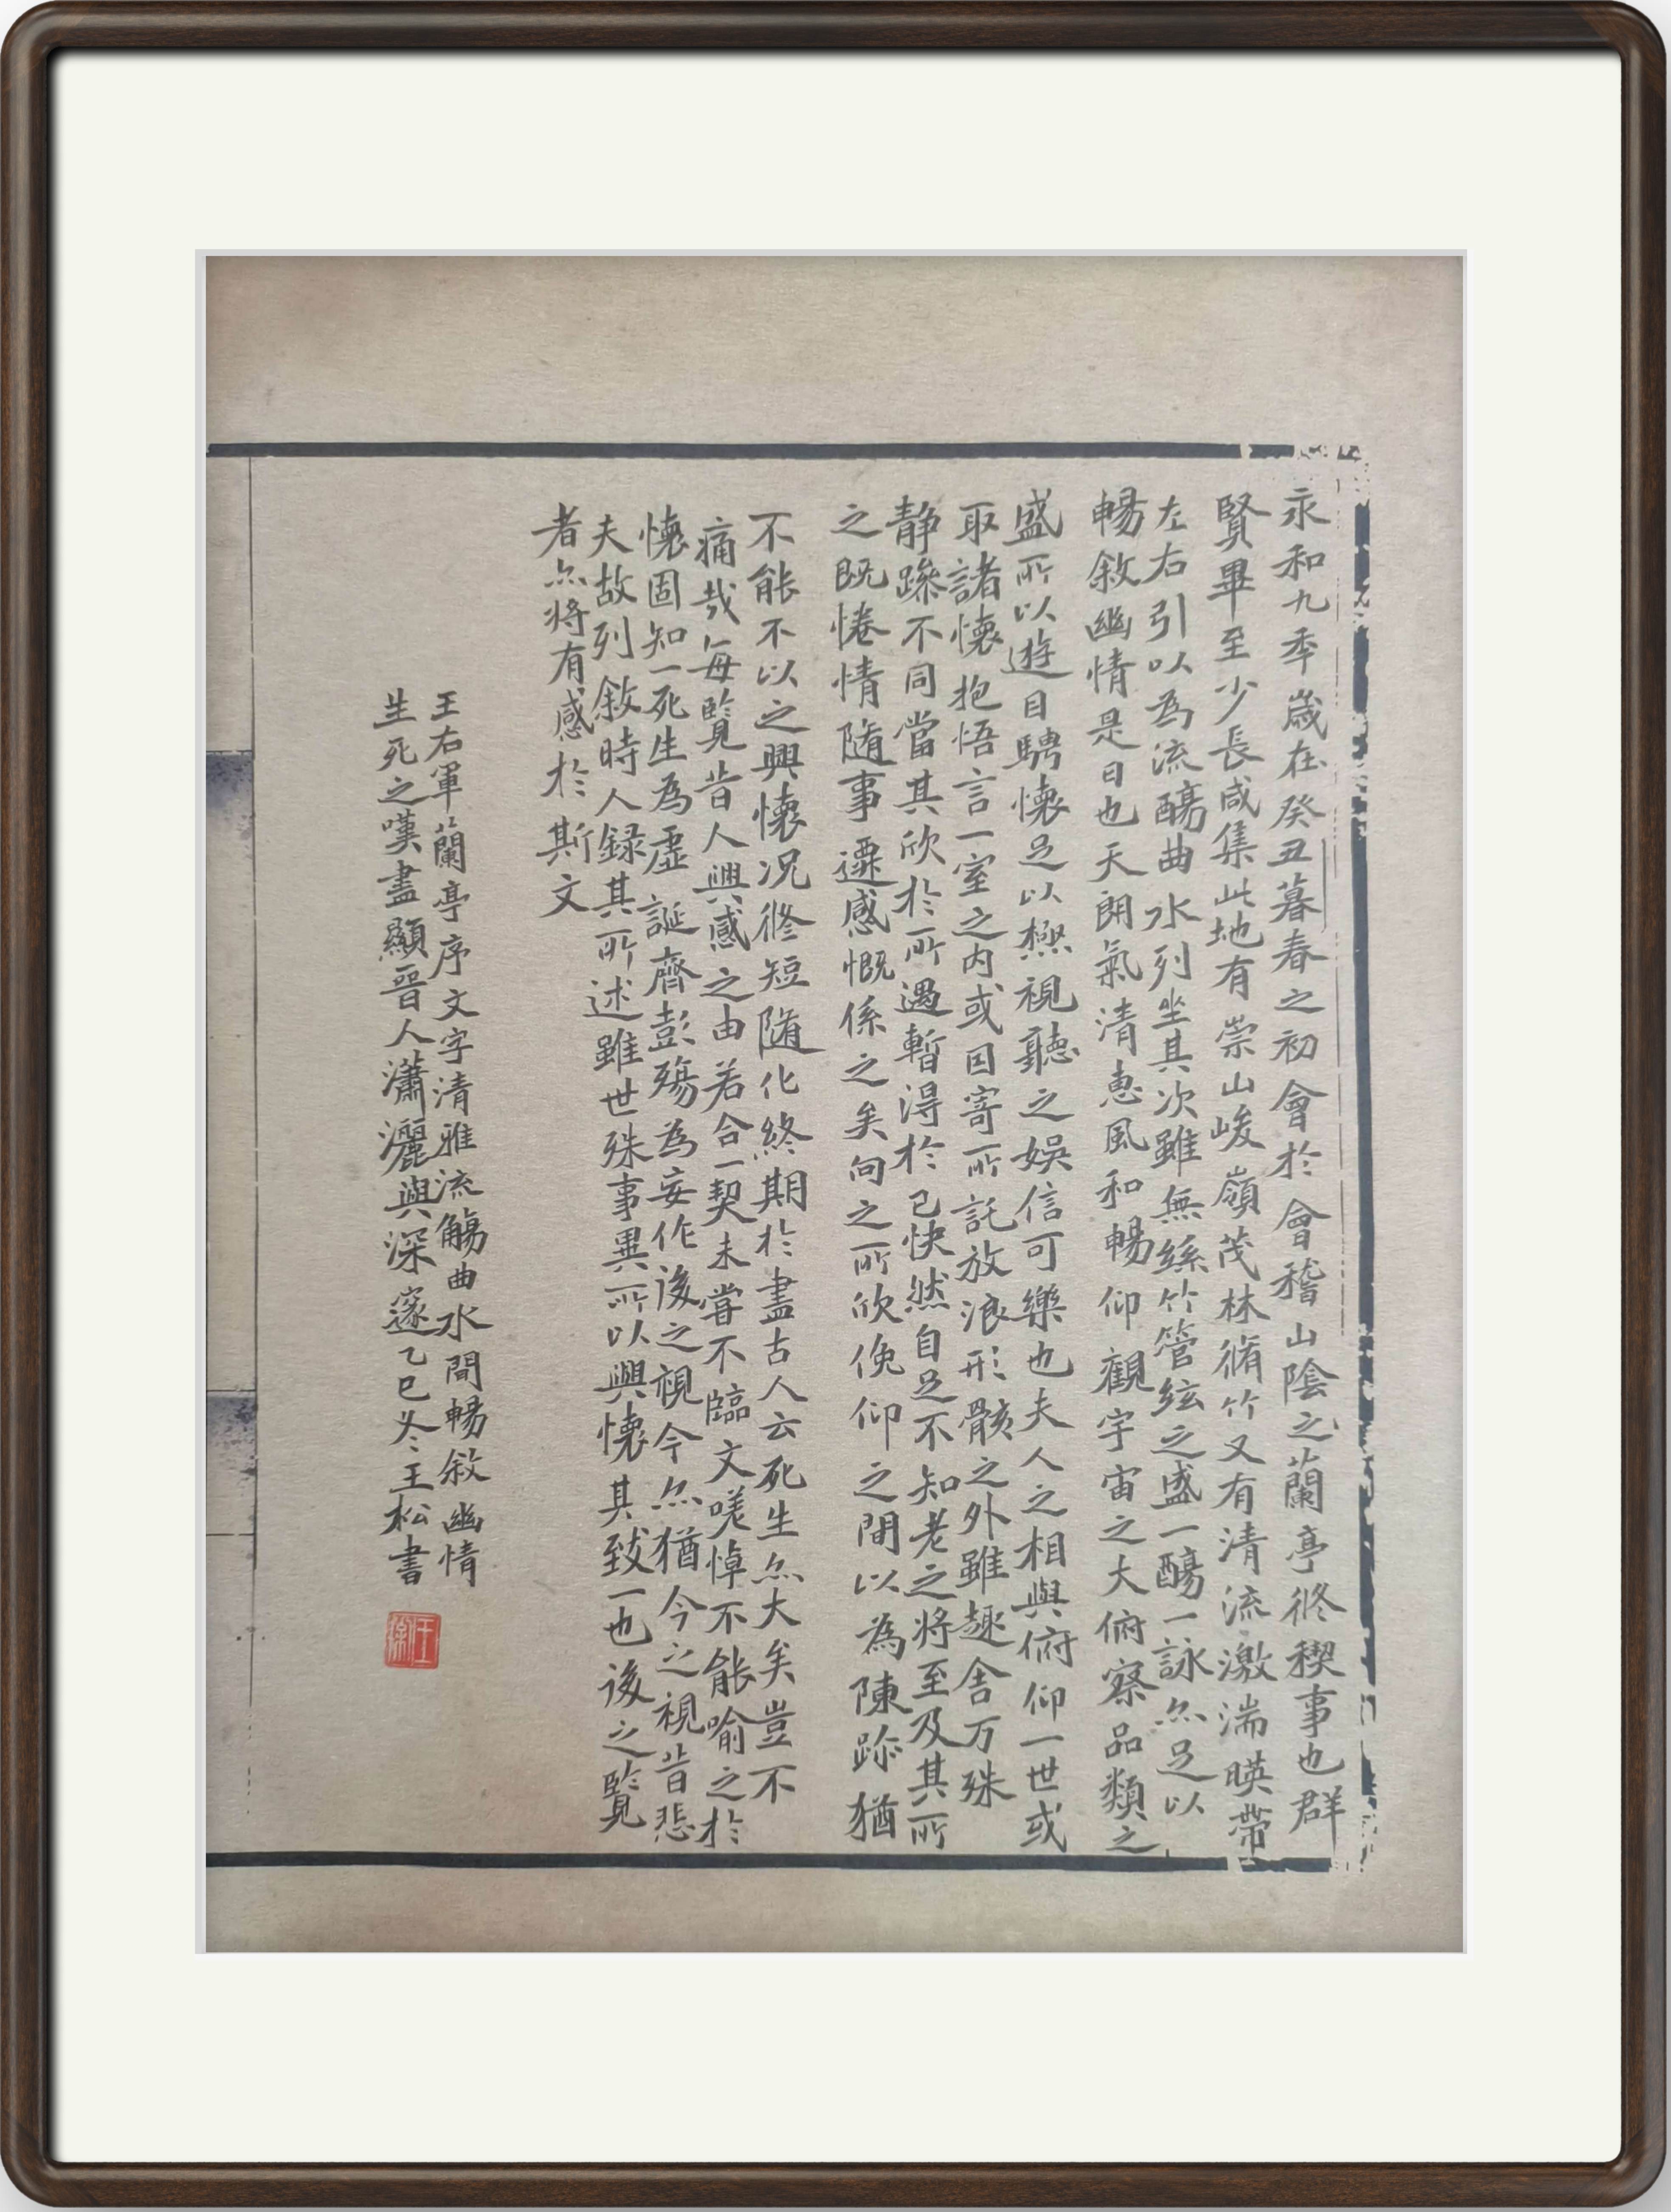 永和九秊歲在癸丑暮春之初會於會稽山陰之蘭亭修禊事也群
賢畢至少長咸集此地有崇山峻嶺茂林脩竹又有清流激湍暎帶
左右引以為流觴曲水列坐其次雖無絲竹管絃之盛一觴一詠亦足以
暢敘幽情是日也天朗氣清惠風和暢仰觀宇宙之大俯察品類之
盛所以遊目騁懷足以極視聽之娛信可樂也夫人之相與俯仰一世或
取諸懷抱悟言一室之内或因寄所託放浪形骸之外雖趣舍万殊
静躁不同當其欣於所遇暫得於己快然自足不知老之將至及其所
之既惓情隨事遷感慨係之矣向之所欣俛仰之間以為陳跡猶
不能不以之興懷況修短隨化終期於盡古人云死生亦大矣豈不
痛哉每覽昔人興感之由若合一契未嘗不臨文嗟悼不能喻之於
懷固知一死生為虛誕齊彭殤為妄作後之視今亦猶今之視昔悲
夫故列敘時人録其所述雖世殊事異所以興懷其致一也後之覽
者亦將有感於斯文
王右軍蘭亭序文字清雅流觴曲水間暢敘幽情
生死之嘆盡顯晉人瀟灑與深邃乙巳冬王松書